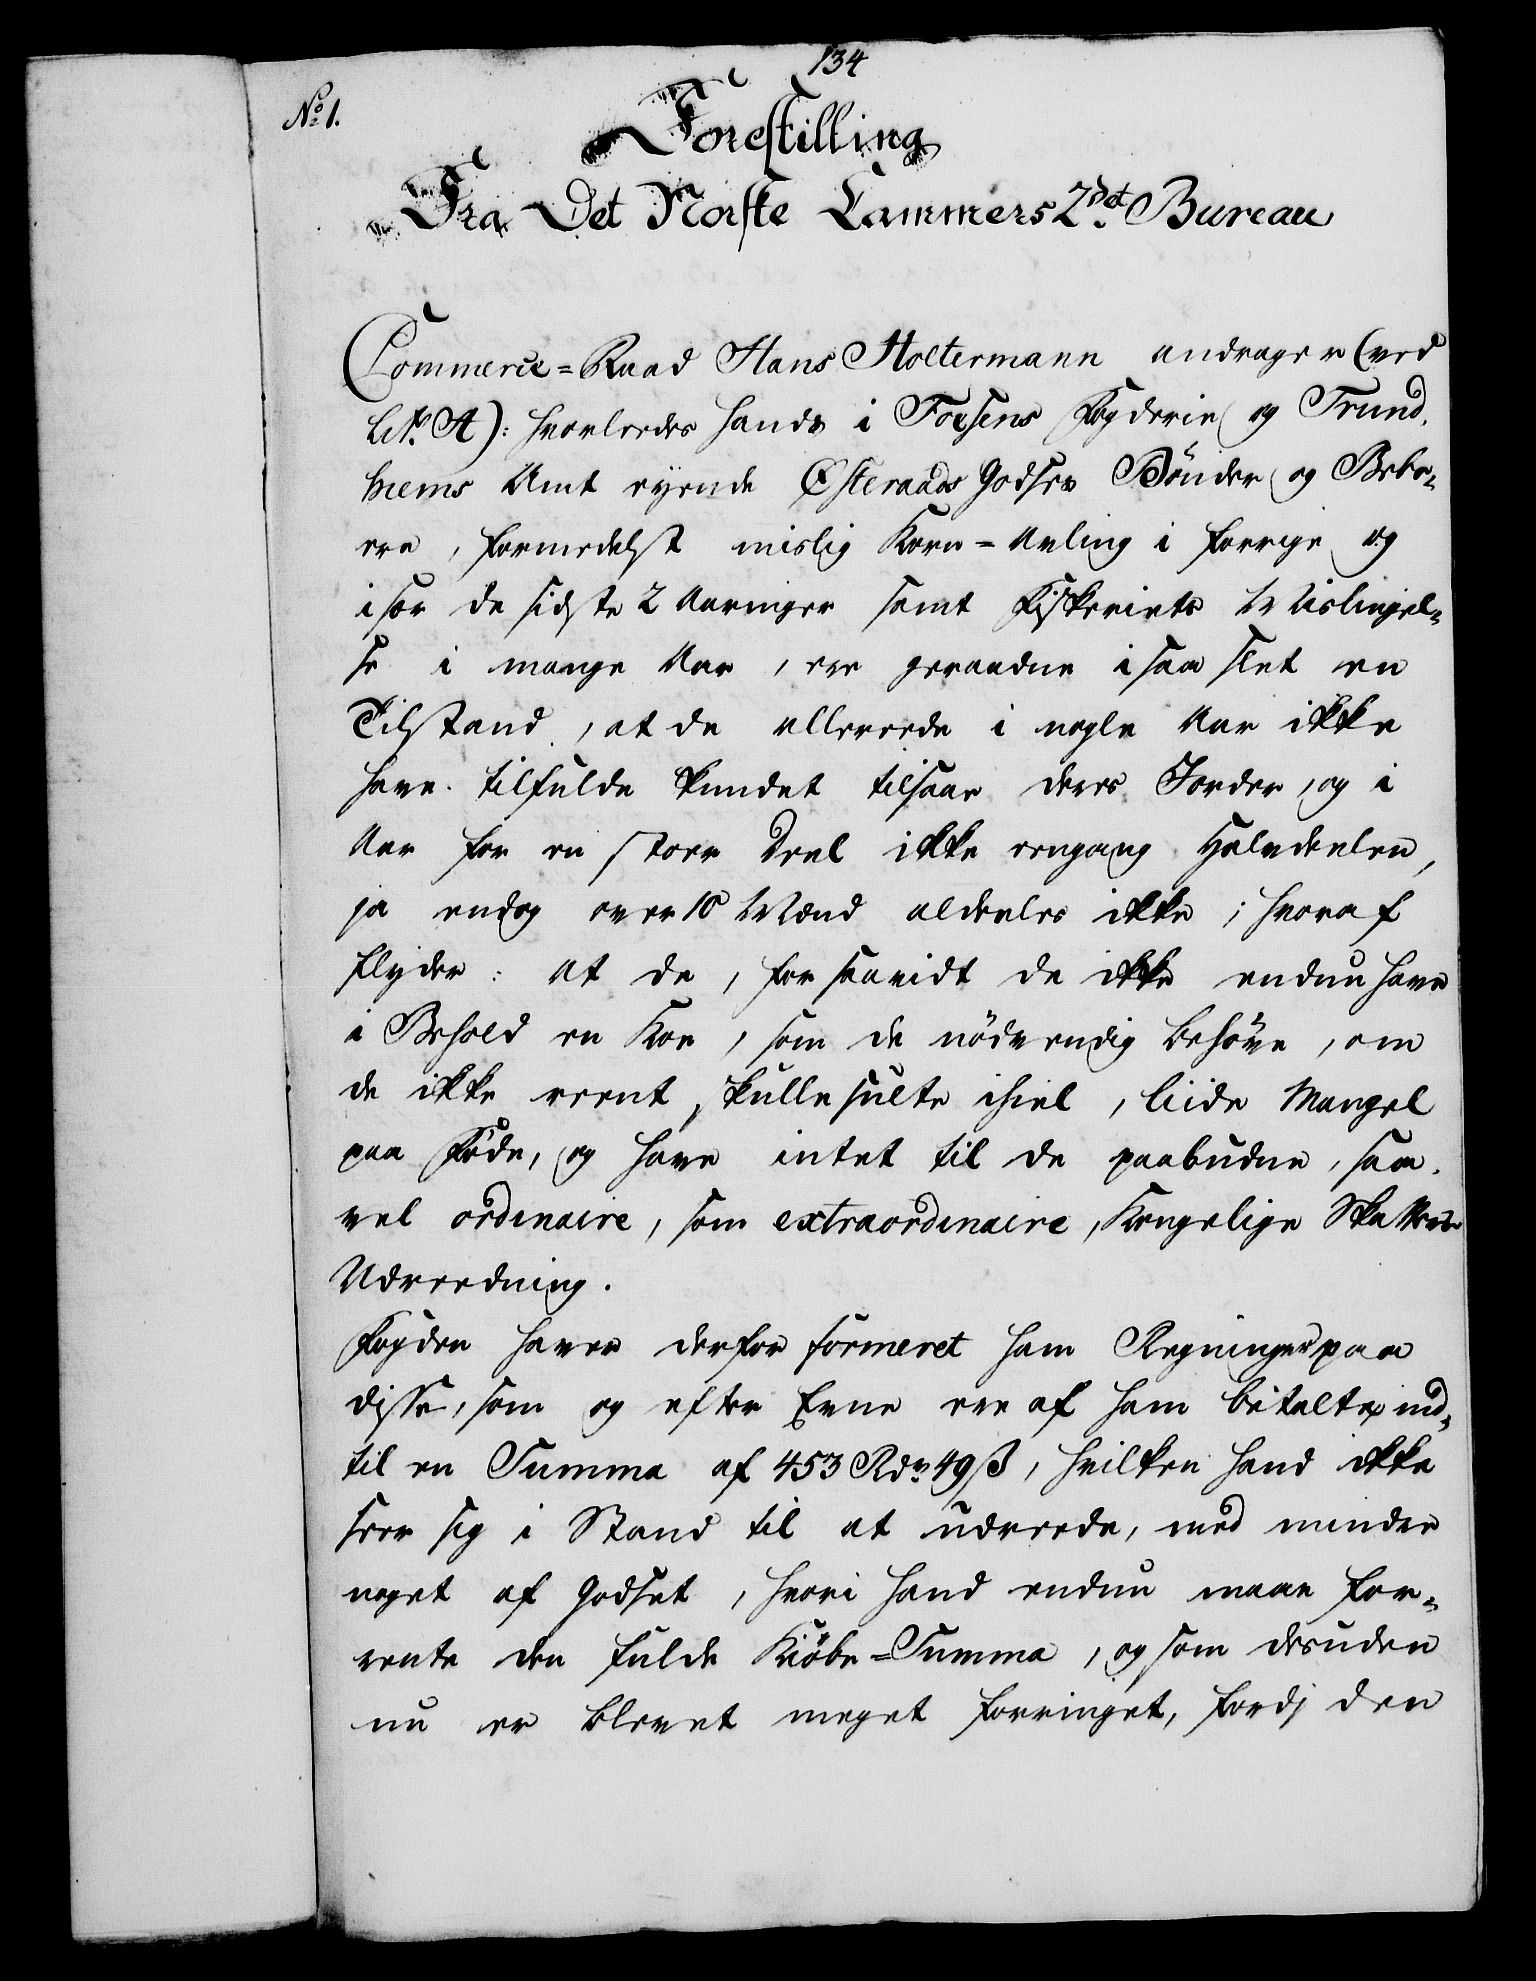 134
No 1.
Forestilling
Fra Det Norske Cammers 2det Bureau
Commerce=Raad Hans Holtermann andrager (ved
Lit. A): hvorledes hands i Fosens Fogderie og Trund-
hiems Amt eyende Østeraads Godses Bønder og Beboe-
ere, formedelst mislig Korn=Avling i forrige og
især de sidste 2 Aaringer samt Fiskeriets Mislingel-
se i mange Aar, ere geraadne i saa slet en
Tilstand, at de allereede i nogle Aar ikke
have tilfulde kundet tilsaae deres Jorder, og i
Aar for en stoer Deel ikke eengang Halvdeelen,
ja endog over 10 Mænd aldeeles ikke; hvoraf
flyder: at de, for saavidt de ikke endnu have
i Behold en Koe, som de nödvendig behöve, om
de ikke reent skulle sulte ihiel, liide Mangel
paa Föde, og have intet til de paabudne, saa-
vel ordinaire, som extraordinaire, Kongelige Skatters
Udreedning.
Fogden haver derfor formeret ham Regninger paa
disse, som og efter Evne ere af ham betalte ind-
til en Summa af 453 Rdr 49 ß, hvilken hand ikke
seer sig i Stand til at udreede, med mindre
noget af Godset, hvori hand endnu maae for-
rente den fulde Kiöbe=Summa, og som desuden
nu er blevet meget forringet, fordj den